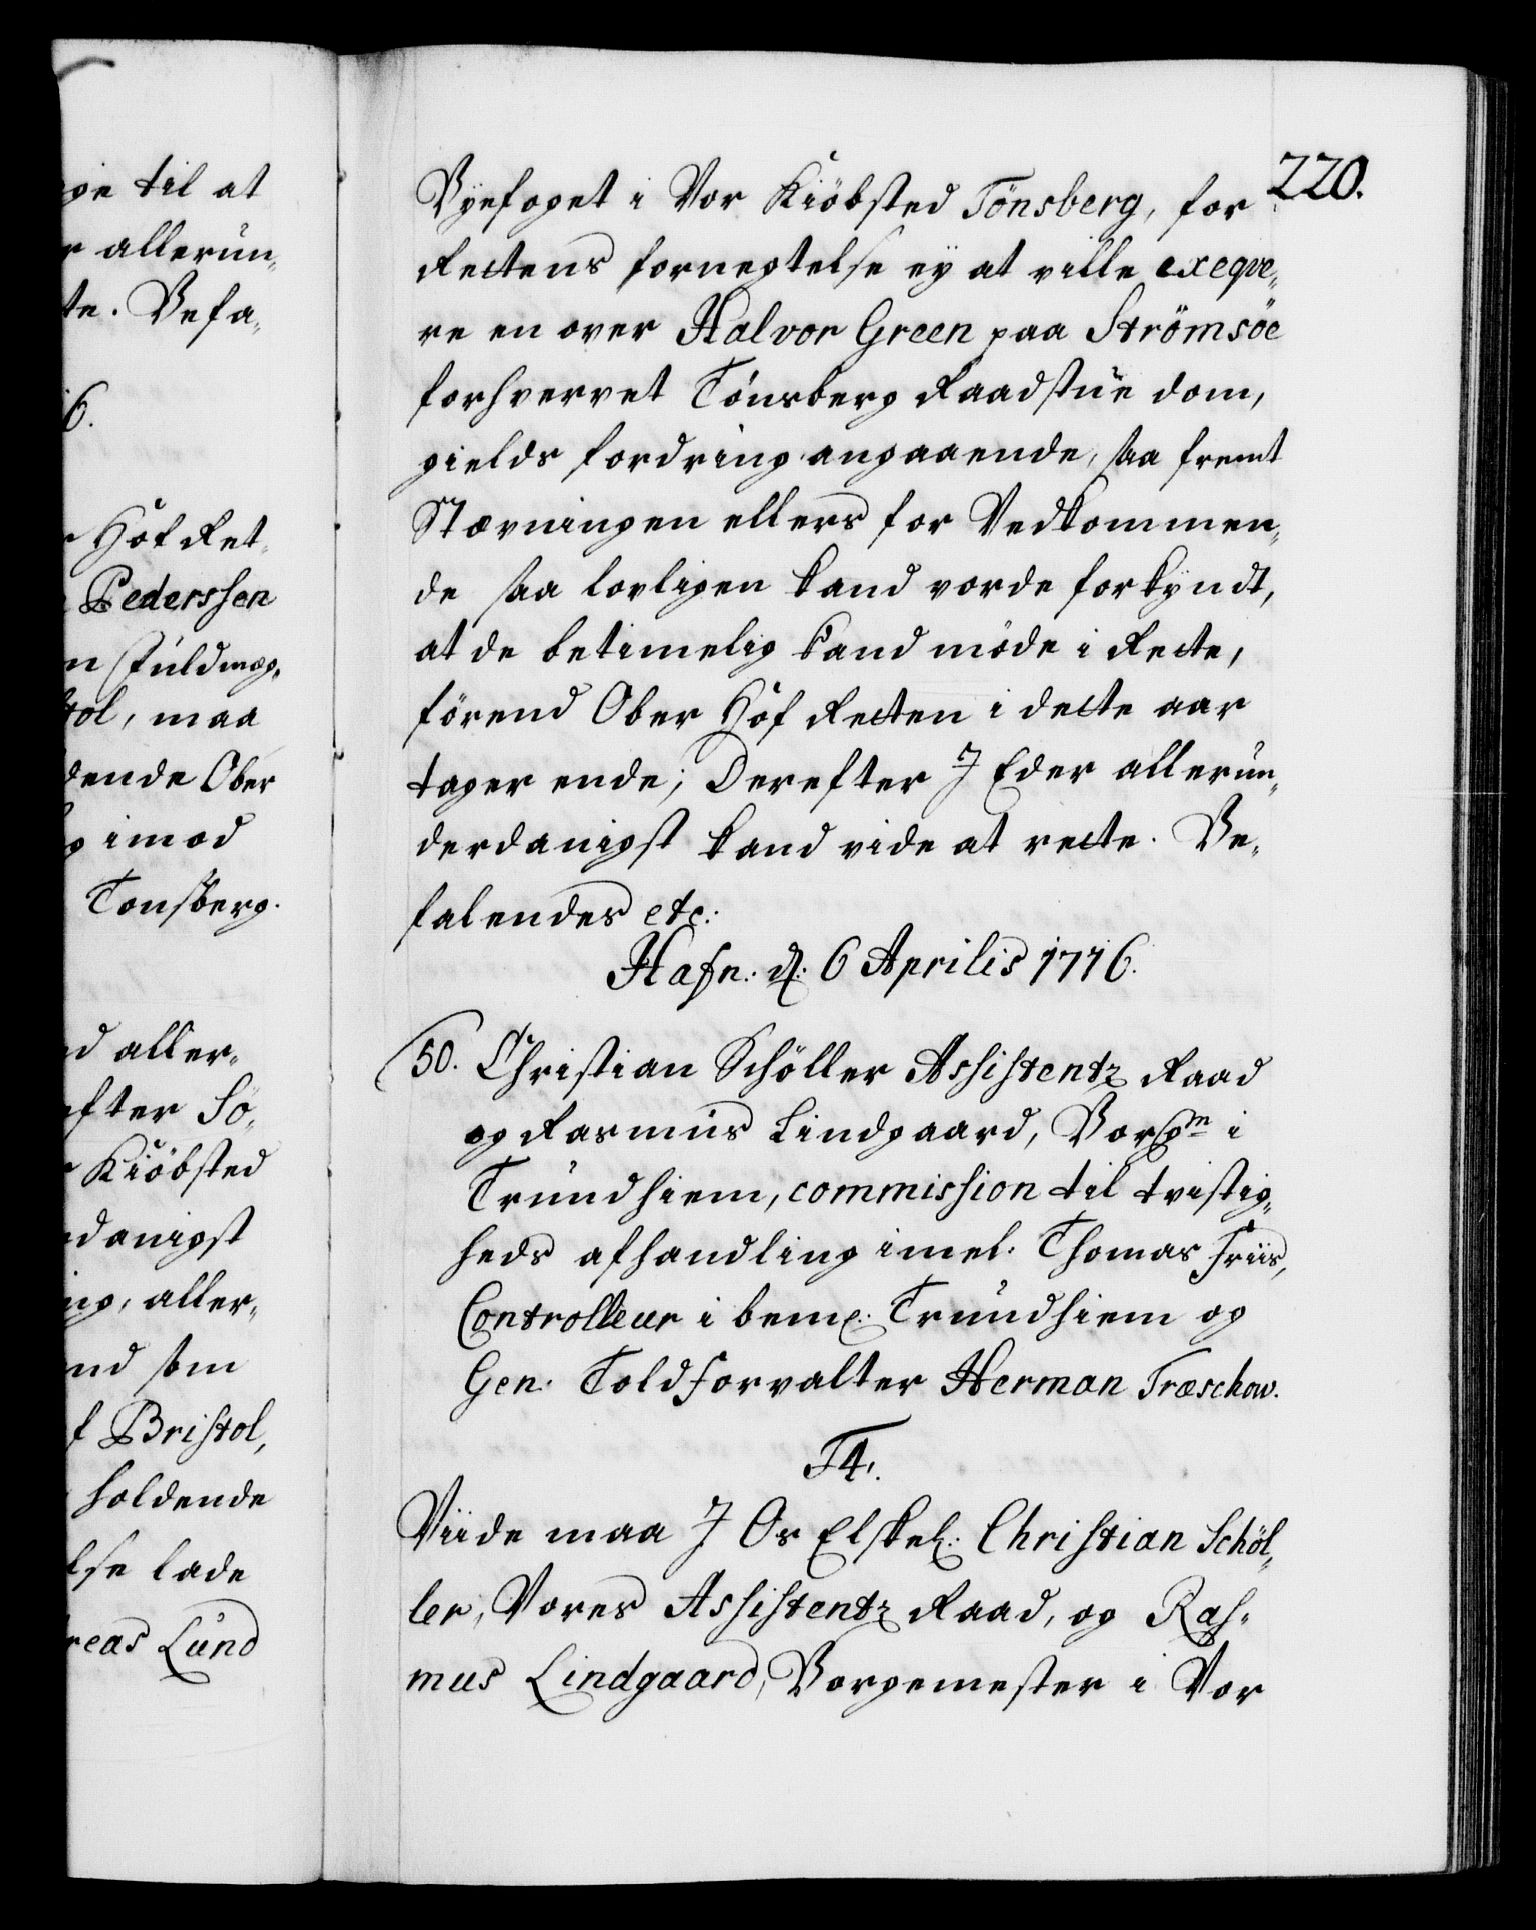 ge til at
r allerun„
te. Befa„
6.
Hof Ret„
Pederssen
n Fuldmæg„
tol, maa
dende Ober
g imod
Tonsberg.
d aller„
efter Sö„
Kiöbsted
danigst
ng, aller„
nd som
f Bristol,
holdende
lse lade
reas Lund
220.
Byefoget i Vor Kiöbsted Tönsberg, for
Rettens fornegtelse ey at ville exeqve„
re en over Halvor Green paa Strömsöe
forhvervet Tönsberg Raadstue dom,
gields fordring angaaende, saa fremt
Stævningen ellers for Vedkommen„
de saa lovligen kand vorde forkyndt,
at de betimelig kand möde i Rette,
förend Ober Hof Retten i dette aar
tager ende; Derefter I Eder allerun„
derdanigst kand vide at rette. Be„
falendes etc:
Hafn: d: 6 Aprilis 1716.
50. Christian Schöller Assistentz Raad
og Rasmus Lindgaard, Borgm i
Trundhiem, commission til tvistig„
heds afhandling imel. Thomas Friis,
Controlleur i bemte: Trundhiem og
Gen. Toldforvalter Herman Træschow.
F4.
Viide maa I Os Elskel: Christian Schöl„
ler, Vores Assistentz Raad, og Ras„
mus Lindgaard, Borgemester i Vor